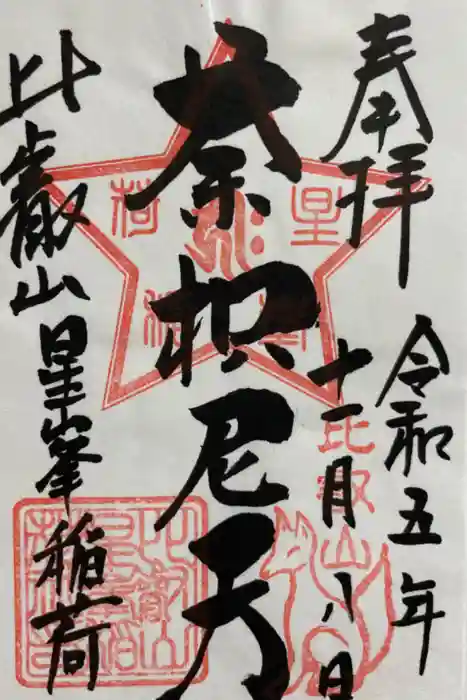 奉拝
令和五年
十一月八日
荼枳尼天
比叡山星峯稲荷
比叡山
星峯稲荷